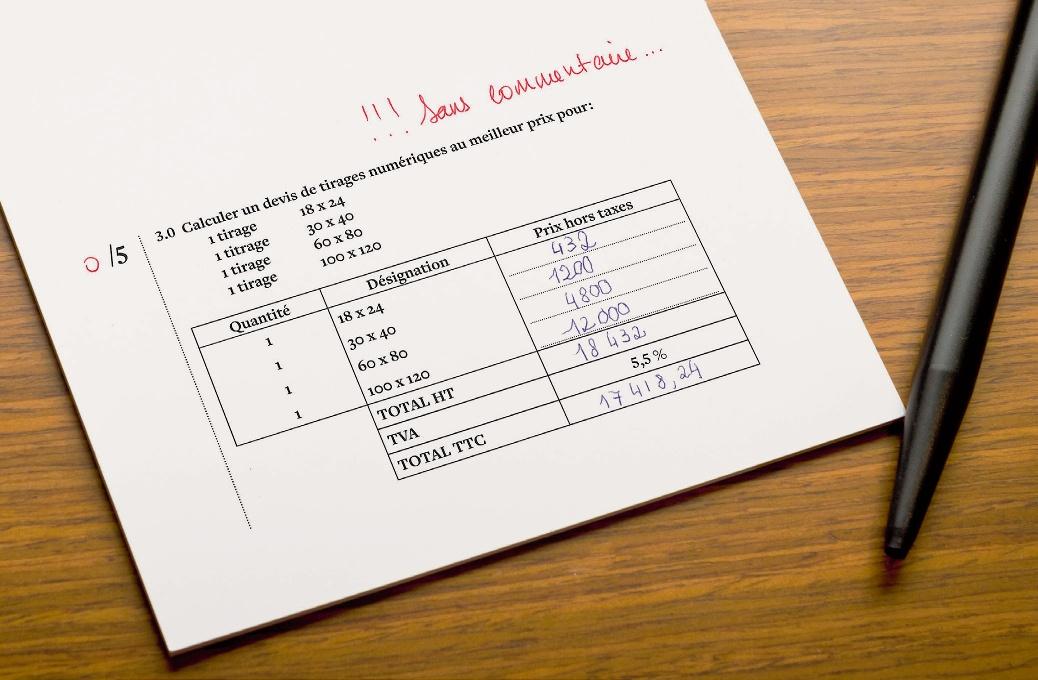 !!! Sans commentaire...
3.0 Calculer un devis de tirages numériques au meilleur prix pour:
1 tirage 18 x 24
1 titrage 30 x 40
1 tirage 60 x 80
1 tirage 100 x 120
0 /5
Quantité Désignation Prix hors taxes
1 18 x 24 432
1 30 x 40 1200
1 60 x 80 4800
1 100 x 120 12000
TOTAL HT 18 432
TVA 5,5 %
TOTAL TTC 17418,24